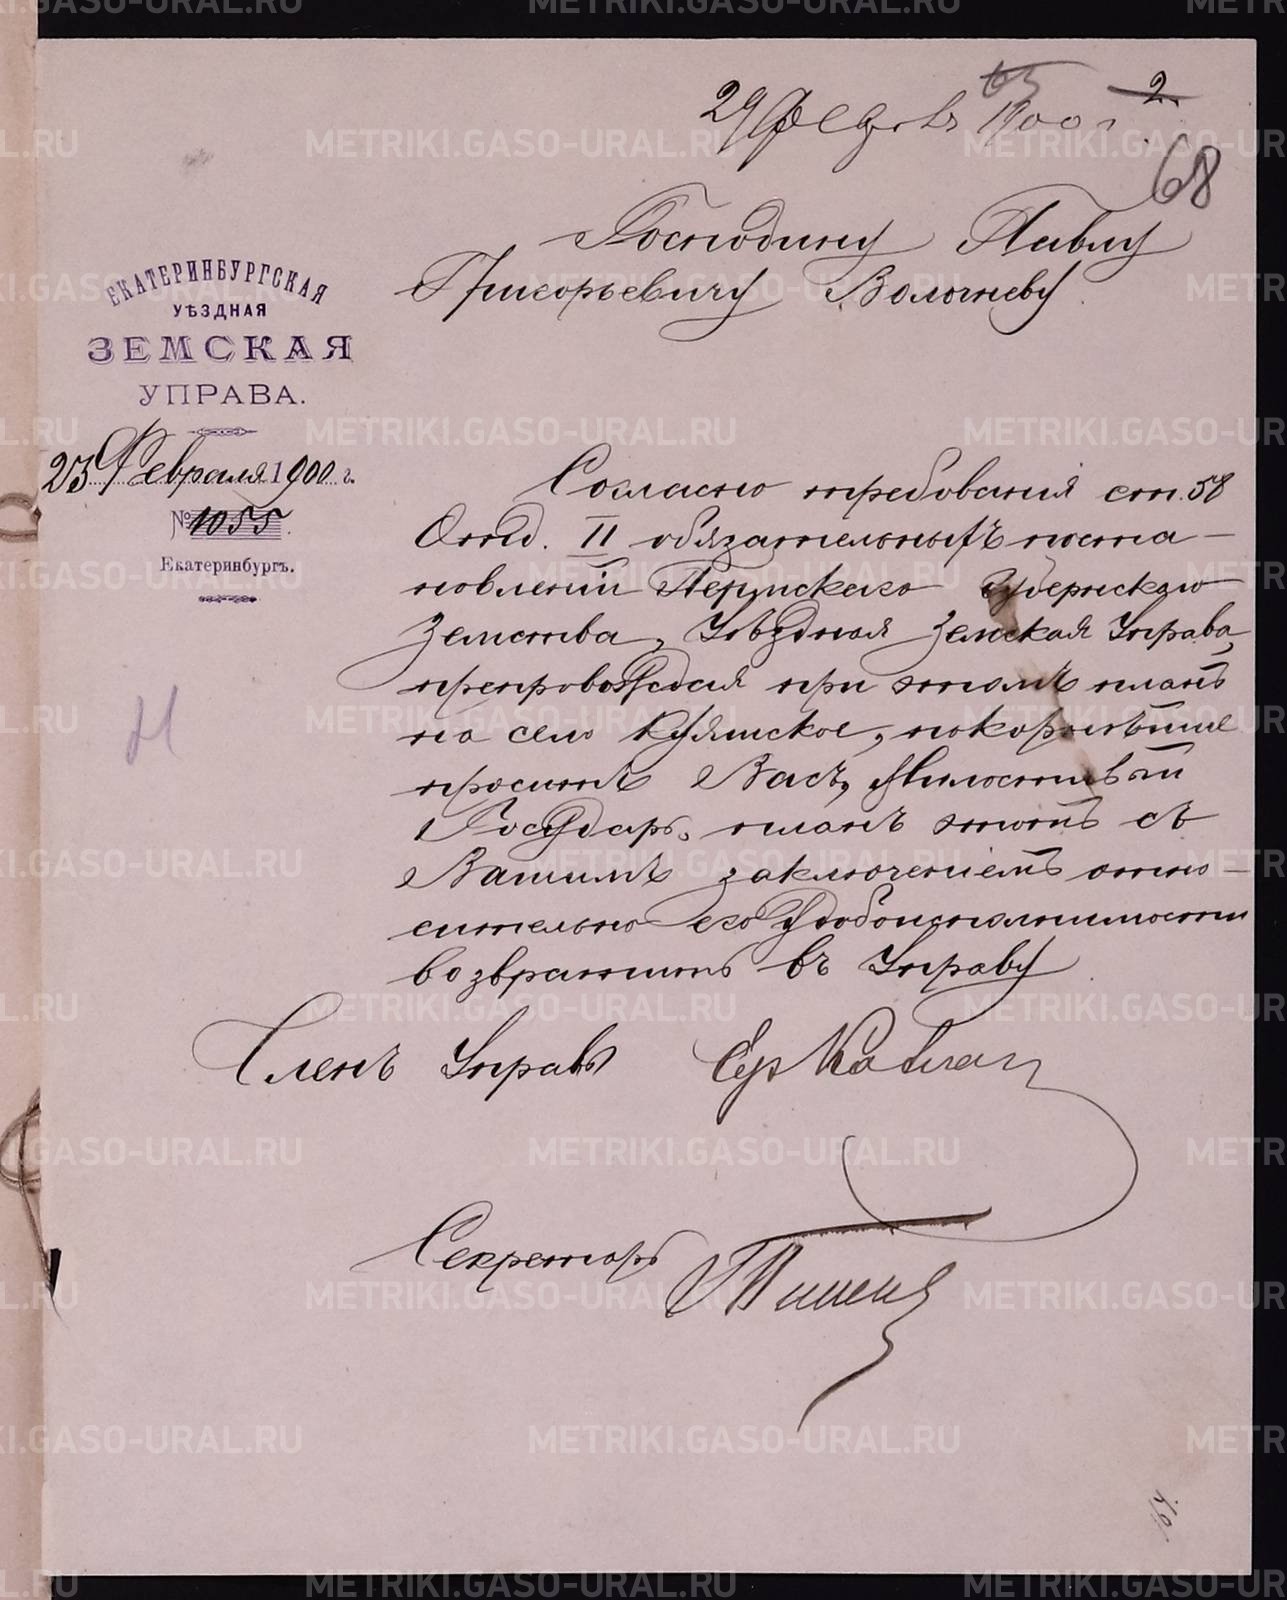 65
2.
29 1900 г
68
Господину Павлу
Григорьевичу Вологневу
ЕКАТЕРИНБУРГСКАЯ
УѢЗДНАЯ
ЗЕМСКАЯ
УПРАВА.
23 Февраля 1900 г.
№ 1055.
Екатеринбургъ.
Согласно требованія ст. 58
Отд. II обязательныхъ поста-
новленій Пермскаго Губернскаго
Земства, Уѣздная Земская Управа,
препровождая при этомъ планъ
на село Куяшское, покорнѣйше
проситъ Васъ, Милостивый
Государь, планъ этотъ съ
Вашимъ заключеніемъ отно-
сительно его удобоисполнимости
возвратить въ Управу
Членъ Управы
Секретарь
METRIKI.GASO-URAL.RU